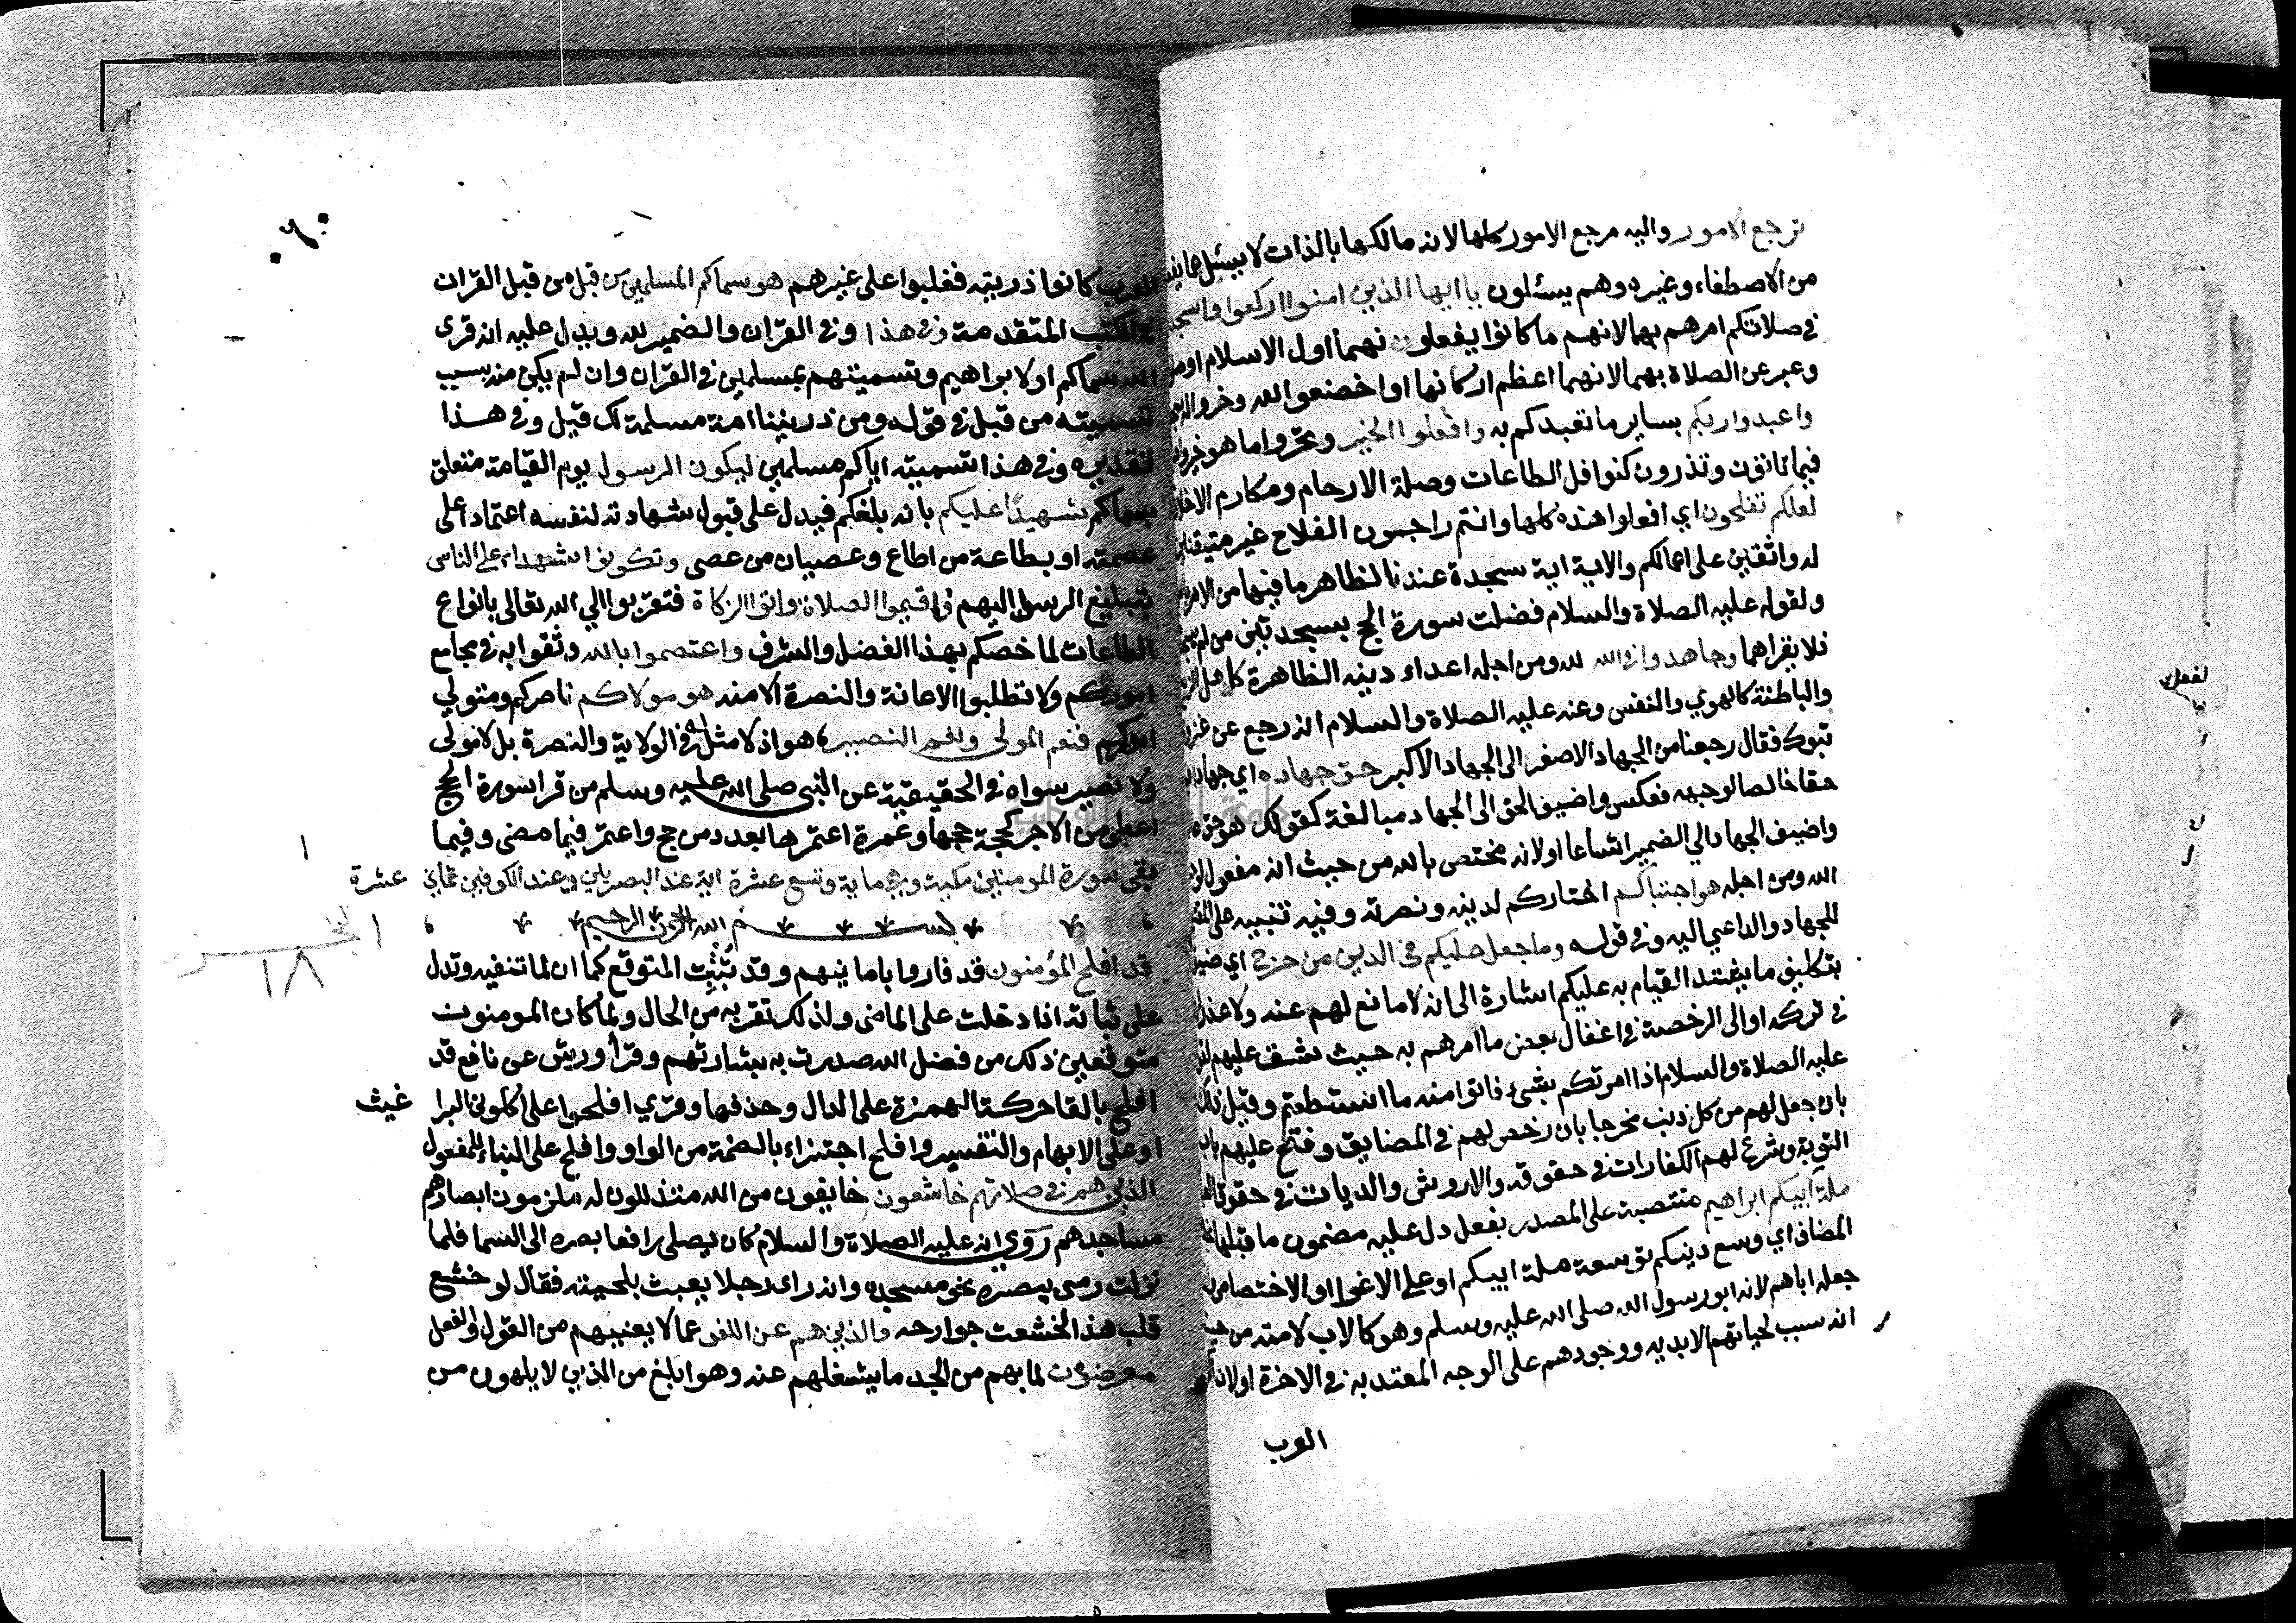 ترجع الامور واليه مرجع الامور كلها لانه مالكها بالذات لا يسئل عما يفعل
من الاصطفاء وغيره وهم يسئلون يا ايها الذين امنوا اركعوا واسجدوا
في صلاتكم امرهم بهما لانهم ما كانوا يفعلونهما اول الاسلام او صلوا
وعبر عن الصلاة بهما لانهما اعظم اركانها او اخضعوا لله وخروا له سجدا
واعبدوا ربكم بساير ما تعبدكم به وافعلوا الخير وتحروا ما هو خير واصلح
فيما تاتون وتذرون كنوافل الطاعات وصلة الارحام ومكارم الاخلاق
لعلكم تفلحون اي افعلوا هذه كلها وانتم راجون الفلاح غير متيقنين
له واثقين على اعمالكم والاية اية سجدة عندنا لظاهر ما فيها من الامر
ولقوله عليه الصلاة والسلام فضلت سورة الحج بسجدتين من لم يسجدهما
فلا يقراهما وجاهدوا في الله لله ومن اجله اعداء دينه الظاهرة كاهل الزيغ
والباطنة كالهوي والنفس وعنه عليه الصلاة والسلام انه رجع عن غزوة
تبوك فقال رجعنا من الجهاد الاصغر الى الجهاد الاكبر حق جهاده اي جهادا
حقا خالصا لوجهه فعكس واضيف الحق الى الجهاد مبالغة كقولك هو حق
واضيف الجهاد الي الضمير اتساعا او لانه مختص بالله من حيث انه مفعول لوجه
الله ومن اجله هو اجتباكم اختاركم لدينه ونصرته وفيه تنبيه على المقتضي
للجهاد والداعي اليه وفي قوله وما جعل عليكم في الدين من حرج اي ضيق
بتكليف ما يشتد القيام به عليكم اشارة الى انه لا مانع لهم عنه ولا عذر لهم
في تركه او الى الرخصة في اغفال بعض ما امرهم به حيث شق عليهم لقوله
عليه الصلاة والسلام اذا امرتكم بشيء فاتوا منه ما استطعتم وقيل ذلك
بان جعل لهم من كل ذنب مخرجا بان رخص لهم في المضايق وفتح عليهم باب
التوبة وشرع لهم الكفارات في حقوقه والاروش والديات في حقوق العباد
ملة ابيكم ابراهيم منتصبة على المصدر بفعل دل عليه مضمون ما قبلها بحذف
المضاف اي وسع دينكم توسعة ملة ابيكم او على الاغرا او الاختصاص وانما
جعله اباهم لانه ابو رسول الله صلى الله عليه وسلم وهو كالاب لامته من حيث
انه سبب لحياتهم الابدية ووجودهم على الوجه المعتد به في الاخرة او لان اكثر
العرب
لفعل
العرب كانوا ذريته فغلبوا على غيرهم هو سماكم المسلمين من قبل من قبل القران
في الكتب المتقدمة وفي هذا وفي القران والضمير لله ويدل عليه انه قرى
الله سماكم او لابراهيم وتسميتهم بمسلمين في القران وان لم يكن منه بسبب
تسميته من قبل في قوله ومن ذريتنا امة مسلمة لك قيل وفي هذا
تقديره وفي هذا تسميته اياكم مسلمين ليكون الرسول يوم القيامة متعلق
بسماكم شهيدا عليكم بانه بلغكم فيدل على قبول شهادته لنفسه اعتمادا على
عصمته او بطاعة من اطاع وعصيان من عصى وتكونوا شهداء على الناس
بتبليغ الرسل اليهم فاقيموا الصلاة واتوا الزكاة فتقربوا الي الله تعالى بانواع
الطاعات لما خصكم بهذا الفضل والشرف واعتصموا بالله وثقوا به في مجامع
اموركم ولا تطلبوا الاعانة والنصرة الا منه هو مولاكم ناصركم ومتولي
اموركم فنعم المولى ونعم النصير هو اذ لا مثل له في الولاية والنصرة بل لا مولى
ولا نصير سواه في الحقيقة عن النبي صلى الله عليه وسلم من قرا سورة الحج
اعطي من الاجر كحجة حجها وعمرة اعتمرها بعدد من حج واعتمر فيما مضى وفيما
بقي سورة المومنين مكية وهي ماية وتسع عشرة اية عند البصريين وعند الكوفيين ثماني عشرة
بسم الله الرحمن الرحيم
قد افلح المؤمنون قد فازوا بامانيهم وقد تثبت المتوقع كما ان لما تنفيه وتدل
على ثباته اذا دخلت على الماضى ولذلك تقربه من الحال ولما كان المومنون
متوقعين ذلك من فضل الله صدرت به بشارتهم وقرأ ورش عن نافع قد
افلح بالقا حركة الهمزة على الدال وحذفها وقري افلحوا على اكلوني البرا غيث
او على الابهام والتفسير وافلح اجتزاء بالضمة من الواو وافلح على البناء للمفعول
الذين هم في صلاتهم خاشعون خايفون من الله متذللون له ملزمون ابصارهم
مساجدهم روي انه عليه الصلاة والسلام كان يصلي رافعا بصره الى السما فلما
نزلت رمى ببصره نحو مسجده وانه راى رجلا يعبث بلحيته فقال لو خشع
قلب هذا لخشعت جوارحه والذين هم عن اللغو عما لا يعنيهم من القول والفعل
معرضون لما بهم من الجد ما يشغلهم عنه وهو ابلغ من الذين لا يلهون من
الجز
١٨